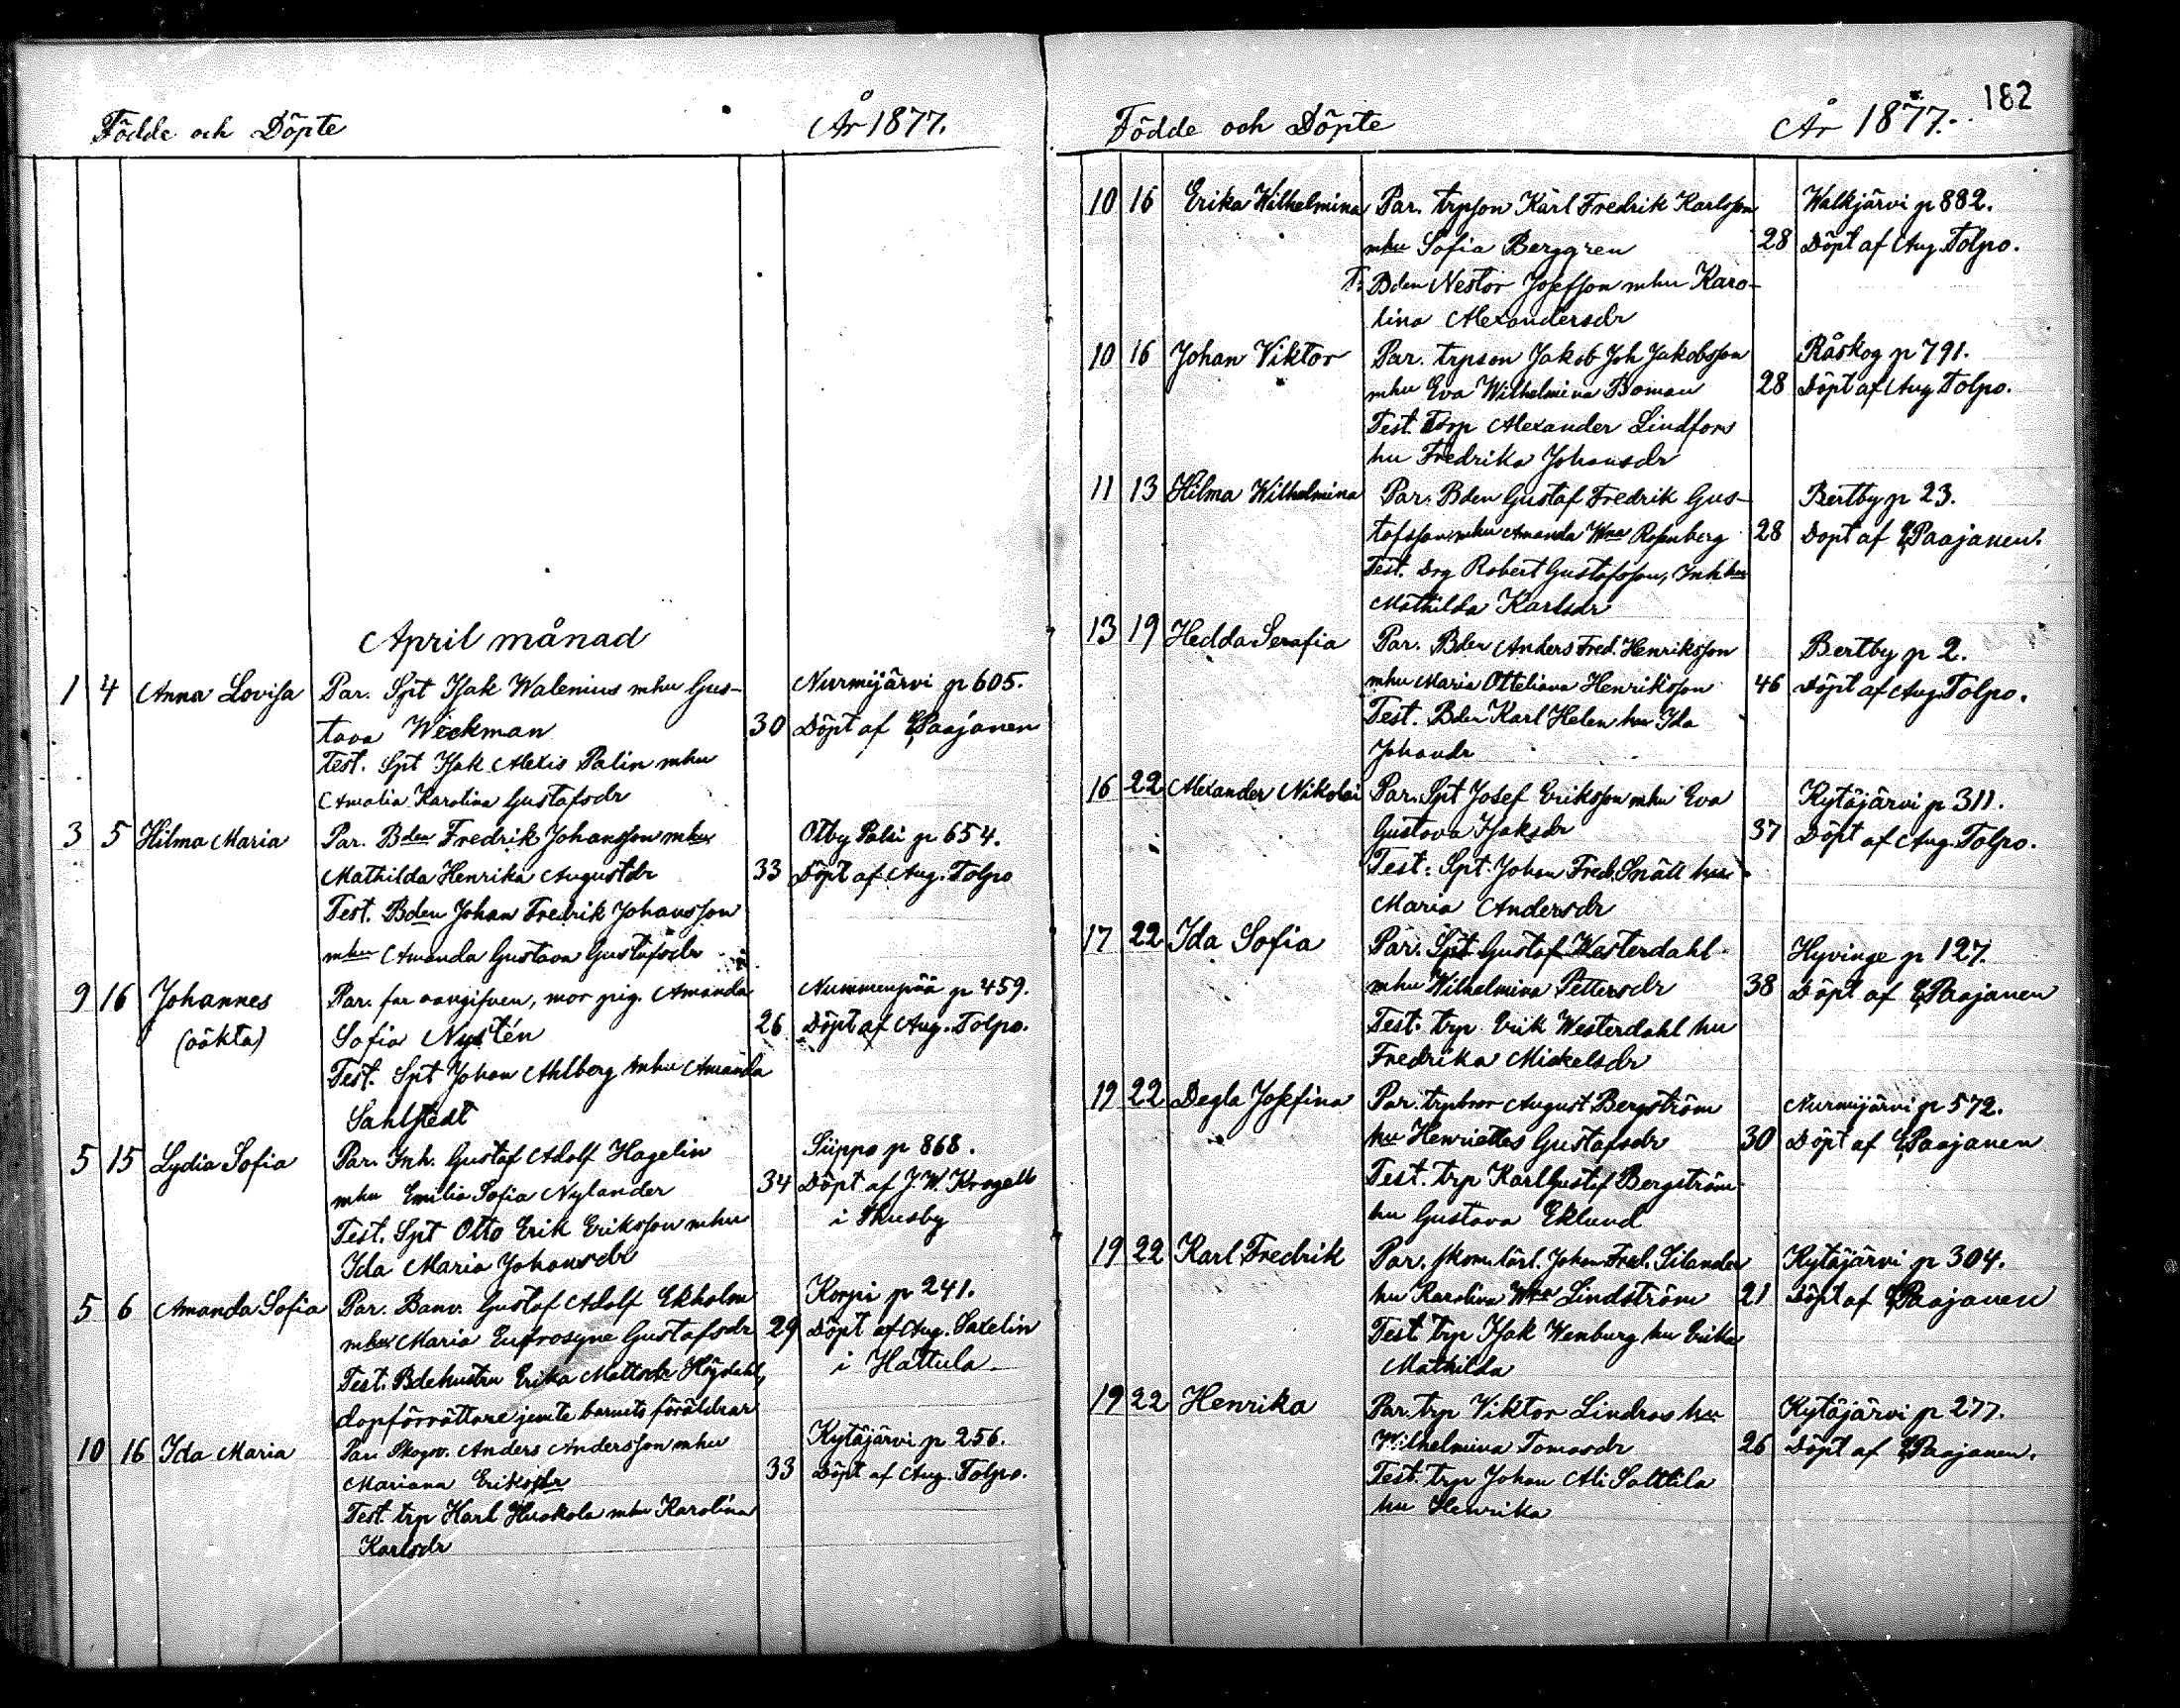 Födde och Döpte År 1877.
April månad
1 4 Anna Lovisa Par. Spt Isak Walenius mhu Gus- Nurmijärvi p 605.
tava Weckman 30 Döpt af E Paajanen
Test. Spt Isak Alexis Palin mhu
Amalia Karolina Gustafsdr
3 5 Hilma Maria Par. Bden Fredrik Johansson mhu Otby Palsi p 654.
Mathilda Henrika Augustdr 33 Döpt af Aug. Tolpo
Test. Bden Johan Fredrik Johansson
mhu Amanda Gustava Gustafsdr
9 16 Johannes Par. far oangifven, mor pig. Amanda Nummenpää p 459.
(oäkta) Sofia Nystén 26 Döpt af Aug. Tolpo.
Test. Spt Johan Ahlberg mhu Amanda
Sahlstedt
5 15 Lydia Sofia Par. Inh. Gustaf Adolf Hagelin Siippo p 868.
mhu Emilia Sofia Nylander 34 Döpt af J. W. Krogell
Test. Spt Otto Erik Eriksson mhu i Thusby
Ida Maria Johansdr
5 6 Amanda Sofia Par. Banv. Gustaf Adolf Ekholm Korpi p 241.
mhu Maria Eufrosyne Gustafsdr 29 Döpt af Aug. Saxelin
Test. Bdehustru Erika Mattsdr Högdahl, i Hattula
dopförrättare jemte barnets föräldrar
10 16 Ida Maria Par. Skogv. Anders Andersson mhu Kytäjärvi p 256.
Mariana Eriksdr 33 Döpt af Aug. Tolpo.
Test. trp Karl Huokola mhu Karolina
Karlsdr
182
Födde och Döpte År 1877.
10 16 Erika Wilhelmina Par. trpson Karl Fredrik Karlsson Walkjärvi p 882.
mhu Sofia Berggren 28 Döpt af Aug. Tolpo.
T. Bden Nestor Josefsson mhu Karo-
lina Alexandersdr
10 16 Johan Viktor Par. trpson Jakob Joh Jakobsson Råskog p 791.
mhu Eva Wilhelmina Boman 28 Döpt af Aug Tolpo.
Test. Torp Alexander Lindfors
hu Fredrika Johansdr
11 13 Hilma Wilhelmina Par. Bden Gustaf Fredrik Gus- Bertby p 23.
tafsson mhu Amanda Wna Rosenberg 28 Döpt af E Paajanen.
Test. Drg Robert Gustafsson, Inhhu
Mathilda Karlsdr
13 19 Hedda Serafia Par. Bden Anders Fred. Henriksson Bertby p 2.
mhu Maria Otteliana Henriksson 46 Döpt af Aug. Tolpo.
Test. Bden Karl Helen hu Ida
Johandr
16 22 Alexander Nikolai Par. Spt Josef Eriksson mhu Eva Kytäjärvi p 311.
Gustova Isaksdr 37 Döpt af Aug. Tolpo.
Test. Spt Johan Fred. Snäll hu
Maria Andersdr
17 22 Ida Sofia Par. Spt Gustaf Westerdahl Hyvinge p 127.
mhu Wilhelmina Pettersdr 38 Döpt af E Paajanen
Test. trp Erik Westerdahl hu
Fredrika Mickelsdr
19 22 Degla Josefina Par. trpbror August Bergström Nurmijärvi p 572.
hu Henriettes Gustafsdr 30 Döpt af E Paajanen
Test. trp Karl Gustaf Bergström
hu Gustava Eklund
19 22 Karl Fredrik Par. skom.lärl. Johan Fred. Silander Kytäjärvi p 304.
hu Karolina Wna Lindström 21 Döpt af E Paajanen
Test trp Isak Wenburg hu Erika
Mathilda
19 22 Henrika Par. trp Viktor Lindros hu Kytäjärvi p 277.
Wilhelmina Tomasdr 26 Döpt af E Paajanen.
Test. trp Johan Ali Salttila
hu Henrika